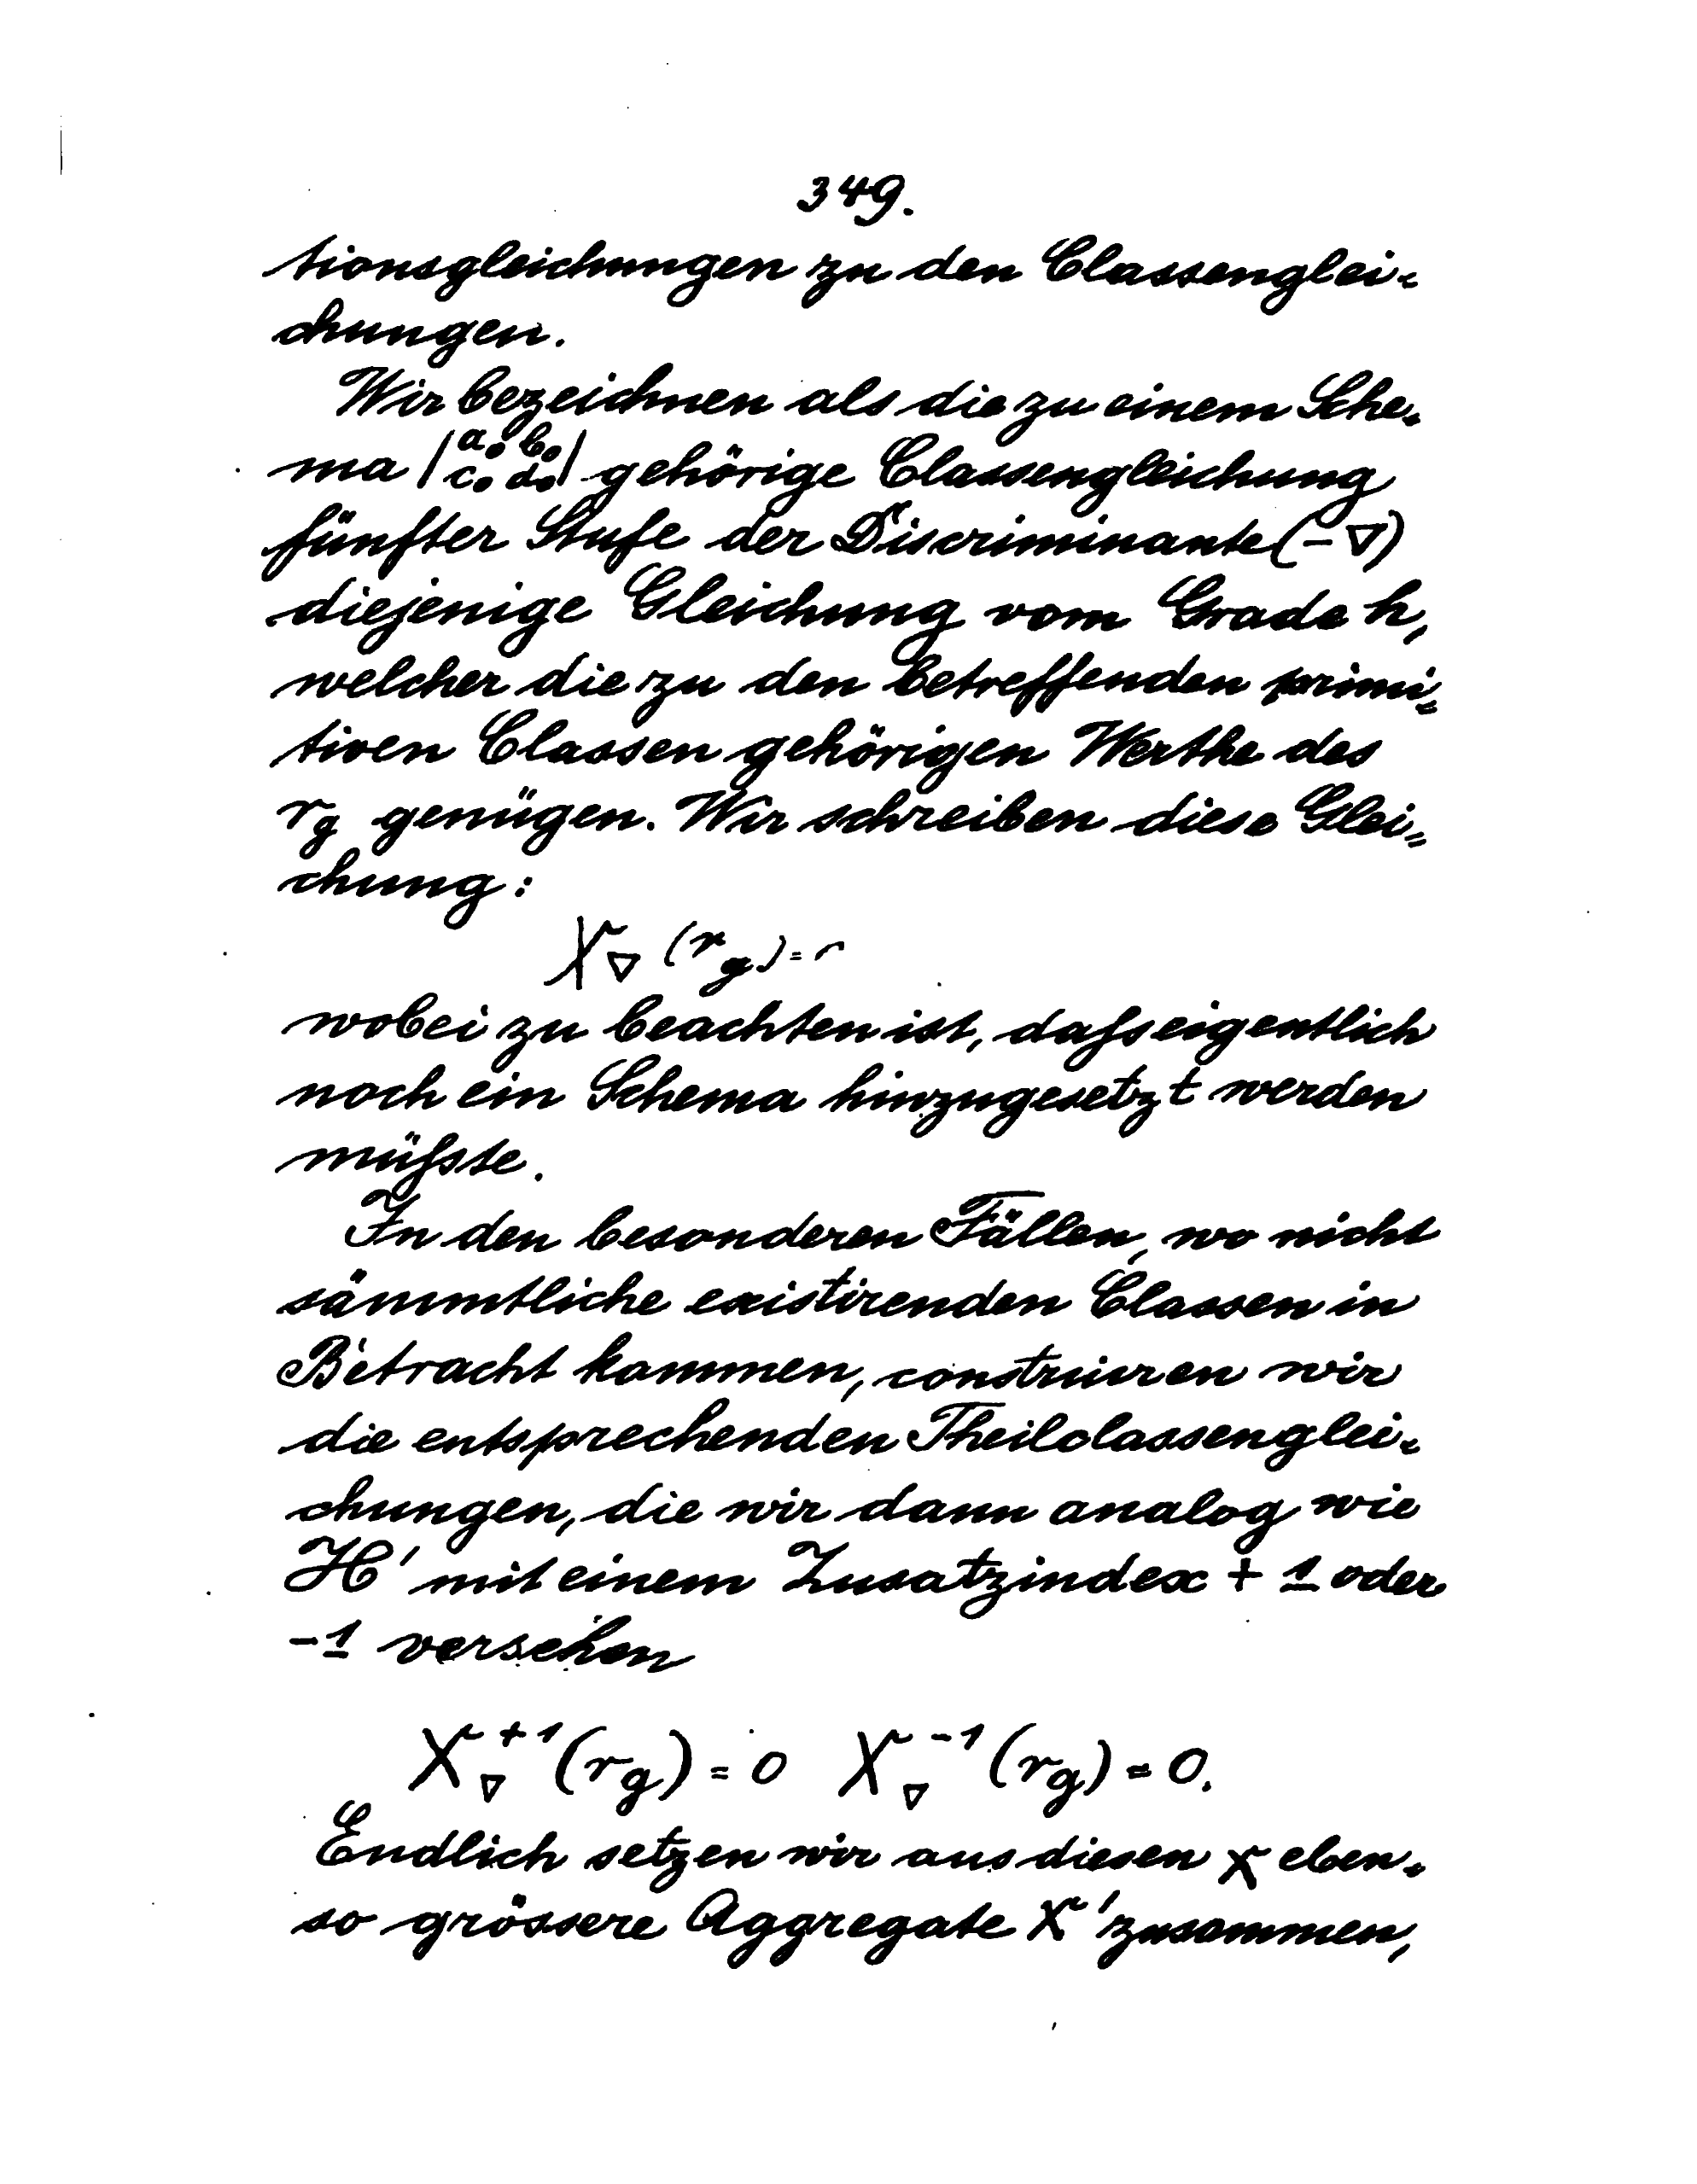 349.
tionsgleichungen zu den Classenglei-
chungen.
Wir bezeichnen als die zu einem Sche-
ma |a₀ b₀ c₀ d₀| gehörige Classengleichung
fünfter Stufe der Discriminante (-∇)
diejenige Gleichung vom Grade h,
welcher die zu den betreffenden primi=
tiven Classen gehörigen Werthe des
r_g genügen. Wir schreiben diese Glei=
chung:
X_∇ (r_g) = 0
wobei zu beachten ist, dafs eigentlich
noch ein Schema hinzugesetzt werden
müfste.
In den besonderen Fällen, wo nicht
sämmtliche existirenden Classen in
Betracht kommen, construiren wir
die entsprechenden Theilclassenglei-
chungen, die wir dann analog wie
H' mit einem Zusatzindex + 1 oder
-1 versehen
X_∇^{+1} (r_g) = 0 X_∇^{-1} (r_g) = 0.
Endlich setzen wir aus diesen X eben-
so grössere Aggregate X' zusammen,